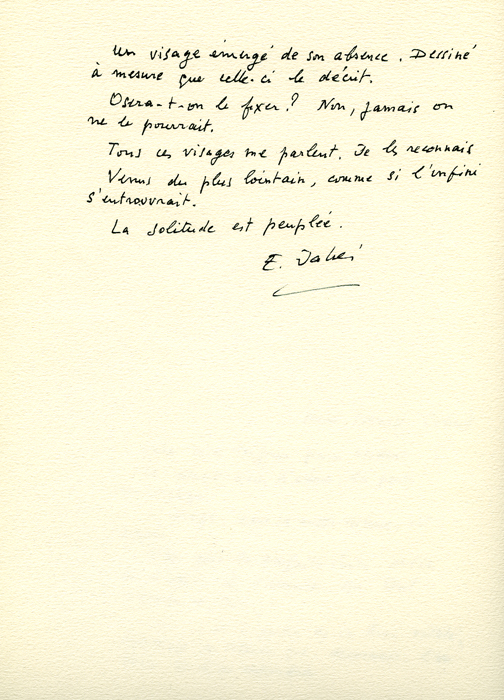 Un visage émergé de son absence. Dessiné
à mesure que celle-ci le décrit.
Osera-t-on le fixer? Non, jamais on
ne le pourrait.
Tous ces visages me parlent. Je les reconnais
Venus du plus lointain, comme si l'infini
s'entrouvrait.
La solitude est peuplée.
E. Jabès